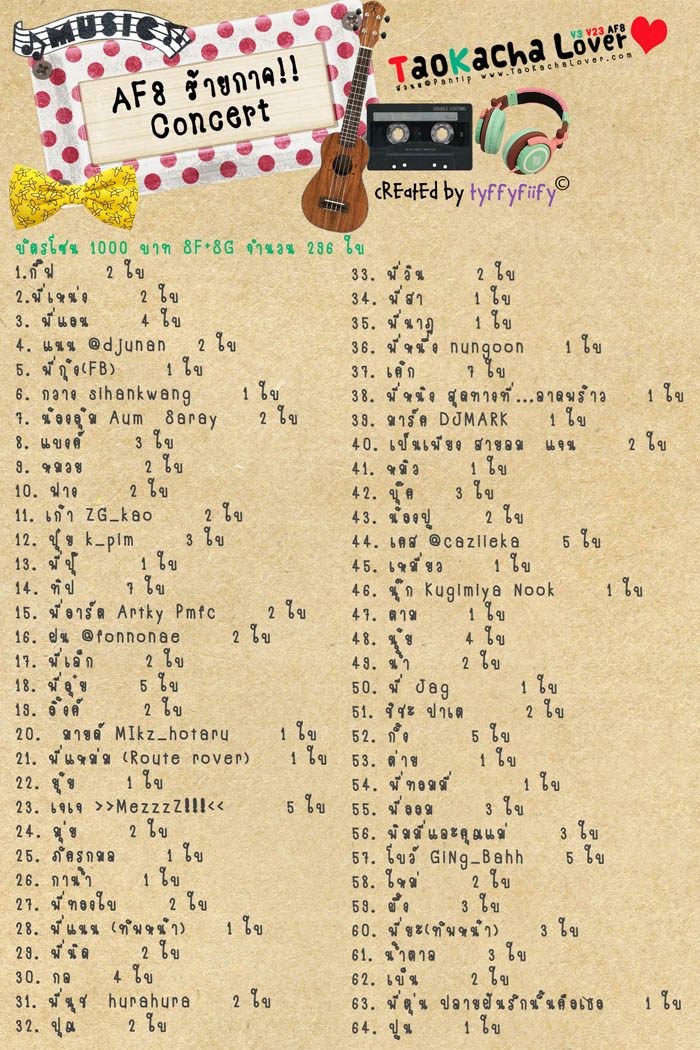 MUSIC
AF8 ร้ายกาจ!!
Concert
TaoKacha Lover
V3 V23 AF8
ชวนฉ@Pantip www.TaoKachaLover.com
cREatEd by tyffyfiify©
บัตรโซน 1000 บาท 8F+8G จำนวน 296 ใบ
1.กิ๊ฟ 2 ใบ
2.พี่เหน่ง 2 ใบ
3. พี่แอน 4 ใบ
4. แนน @djunan 2 ใบ
5. พี่กุ้ง(FB) 1 ใบ
6. กวาง sihankwang 1 ใบ
7. น้องอุ้ม Aum Saray 2 ใบ
8. แบงค์ 3 ใบ
9. หมวย 2 ใบ
10. ฟาง 2 ใบ
11. เก๋า ZG_kao 2 ใบ
12. ปุ๋ย k_pim 3 ใบ
13. พี่ปุ๊ 1 ใบ
14. ทิป 7 ใบ
15. พี่อาร์ต Artky Pmfc 2 ใบ
16. ฝน @fonnonae 2 ใบ
17. พี่เล็ก 2 ใบ
18. พี่อุ๋ย 5 ใบ
19. อิ้งค์ 2 ใบ
20. มายด์ MIkz_hotaru 1 ใบ
21. พี่แหม่ม (Route rover) 1 ใบ
22. ยุ้ย 1 ใบ
23. เจเจ >>MezzzZ!!!!<< 5 ใบ
24. มุ่ย 2 ใบ
25. ภัครกมล 1 ใบ
26. กาน้ำ 1 ใบ
27. พี่ทองใบ 2 ใบ
28. พี่แนน (ทัพหน้า) 1 ใบ
29. พี่นิด 2 ใบ
30. กล 4 ใบ
31. พี่นุช hurahura 2 ใบ
32. ปุณ 2 ใบ
33. พี่วิน 2 ใบ
34. พี่สา 1 ใบ
35. พี่นาฏ 1 ใบ
36. พี่หนึ่ง nungoon 1 ใบ
37. เค้ก 7 ใบ
38. พี่หนิง สุดทางที่...ลาดพร้าว 1 ใบ
39. มาร์ค DJMARK 1 ใบ
40. เป็นเพียง สายลม แจน 2 ใบ
41. หมิว 1 ใบ
42. บุ๊ค 3 ใบ
43. น้องปู 2 ใบ
44. เคส @caziieka 5 ใบ
45. เหมี่ยว 1 ใบ
46. นุ๊ก Kugimiya Nook 1 ใบ
47. ตาม 1 ใบ
48. นุ้ย 4 ใบ
49. น้ำ 2 ใบ
50. พี่ Jag 1 ใบ
51. ชิชะ ปาเต 2 ใบ
52. กิ๊ง 5 ใบ
53. ต่าย 1 ใบ
54. พี่ทอมมี่ 1 ใบ
55. พี่ออม 3 ใบ
56. พิมมี่และคุณแม่ 3 ใบ
57. โบว์ GiNg_Bahh 5 ใบ
58. ใหม่ 2 ใบ
59. ผึ้ง 3 ใบ
60. พี่ยะ(ทัพหน้า) 3 ใบ
61. น้ำตาล 3 ใบ
62. เบ็น 2 ใบ
63. พี่ตุ่น ปลายฝันรักนั้นคือเธอ 1 ใบ
64. ปูน 1 ใบ